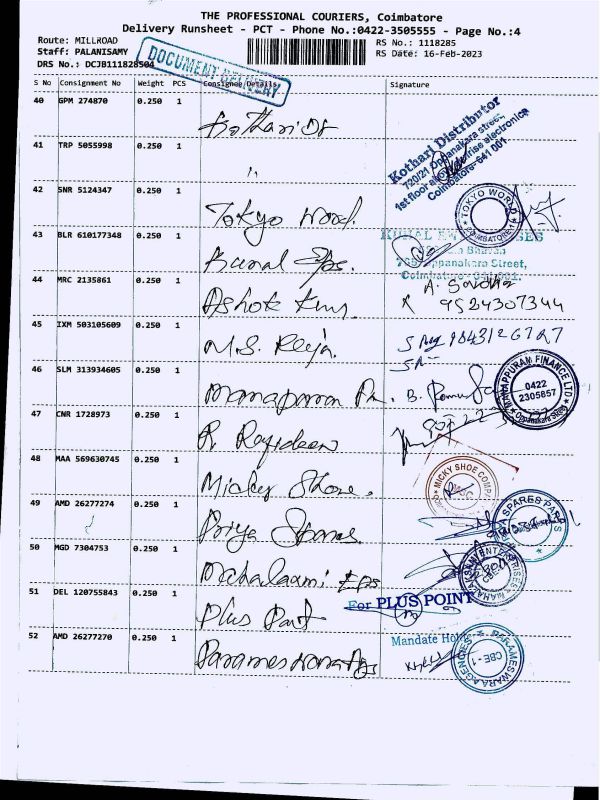 THE PROFESSIONAL COURIERS, Coimbatore
Delivery Runsheet - PCT - Phone No.:0422-3505555 - Page No.:4
Route: MILLROAD
RS No.: 1118285
Staff: PALANISAMY
RS Date: 16-Feb-2023
DRS No.: DCJB111828504
DOCUMENT DELIVERY
S No Consignment No Weight PCS Consignee Details Signature
40 GPM 274870 0.250 1 Kothari Dr
Kothari Distributor
720/21 Oppanakara street,
1st floor above sunrise electronica
Coimbatore-641 001
41 TRP 5055998 0.250 1 "
42 SNR 5124347 0.250 1 Tokyo World.
TOKYO WORLD
COIMBATORE-1
43 BLR 610177348 0.250 1 Kunal Eps.
KUNAL ENTERPRISES
Oppanakara Street,
Coimbatore - 641 001.
44 MRC 2135861 0.250 1 Ashok Kmr
9524307344
45 IXM 503105609 0.250 1 M.S. Reeja.
46 SLM 313934605 0.250 1 Manapuram Fn.
MANAPPURAM FINANCE LTD
0422
2305857
Oppanakara Street
47 CNR 1728973 0.250 1 R
48 MAA 569630745 0.250 1 Micky Shoe.
MICKY SHOE COMPANY
MSC
49 AMD 26277274 0.250 1 Priya Spares
PRIYA SPARES PARTS
50 MGD 7304753 0.250 1 Mahalaxmi Eps
MAHALAXMI ENTERPRISES
51 DEL 120755843 0.250 1 Plus Point
For PLUS POINT
52 AMD 26277270 0.250 1 Parameswara Ags
Mandate Holder
PARAMESWARA AGENCIES
CBE - 1